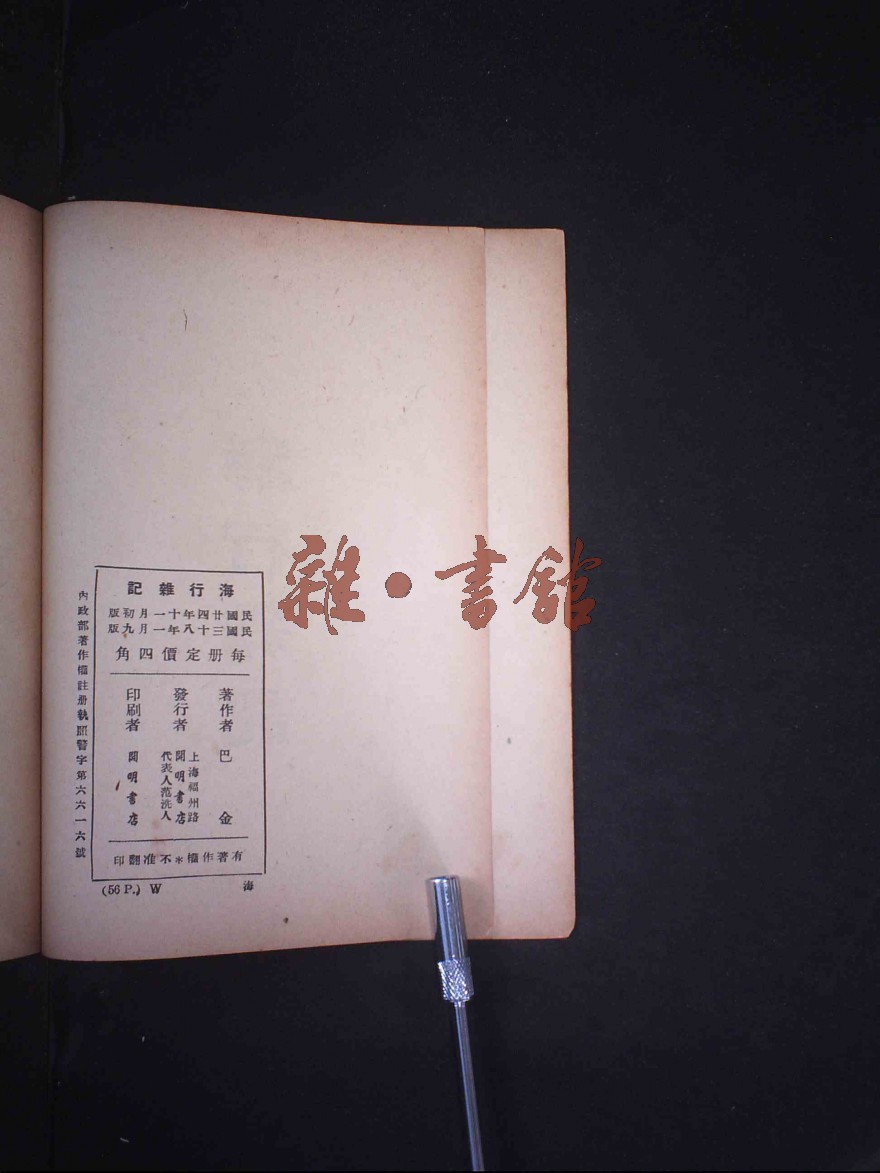 海行雜記
民國廿四年十一月初版
民國三十八年一月九版
每册定價四角
著作者 巴金
發行者 上海福州路
開明書店
代表人范洗人
印刷者 開明書店
有著作權*不准翻印
內政部著作權註册執照警字第六六一六號
(56 P.) W 海
雜·書館